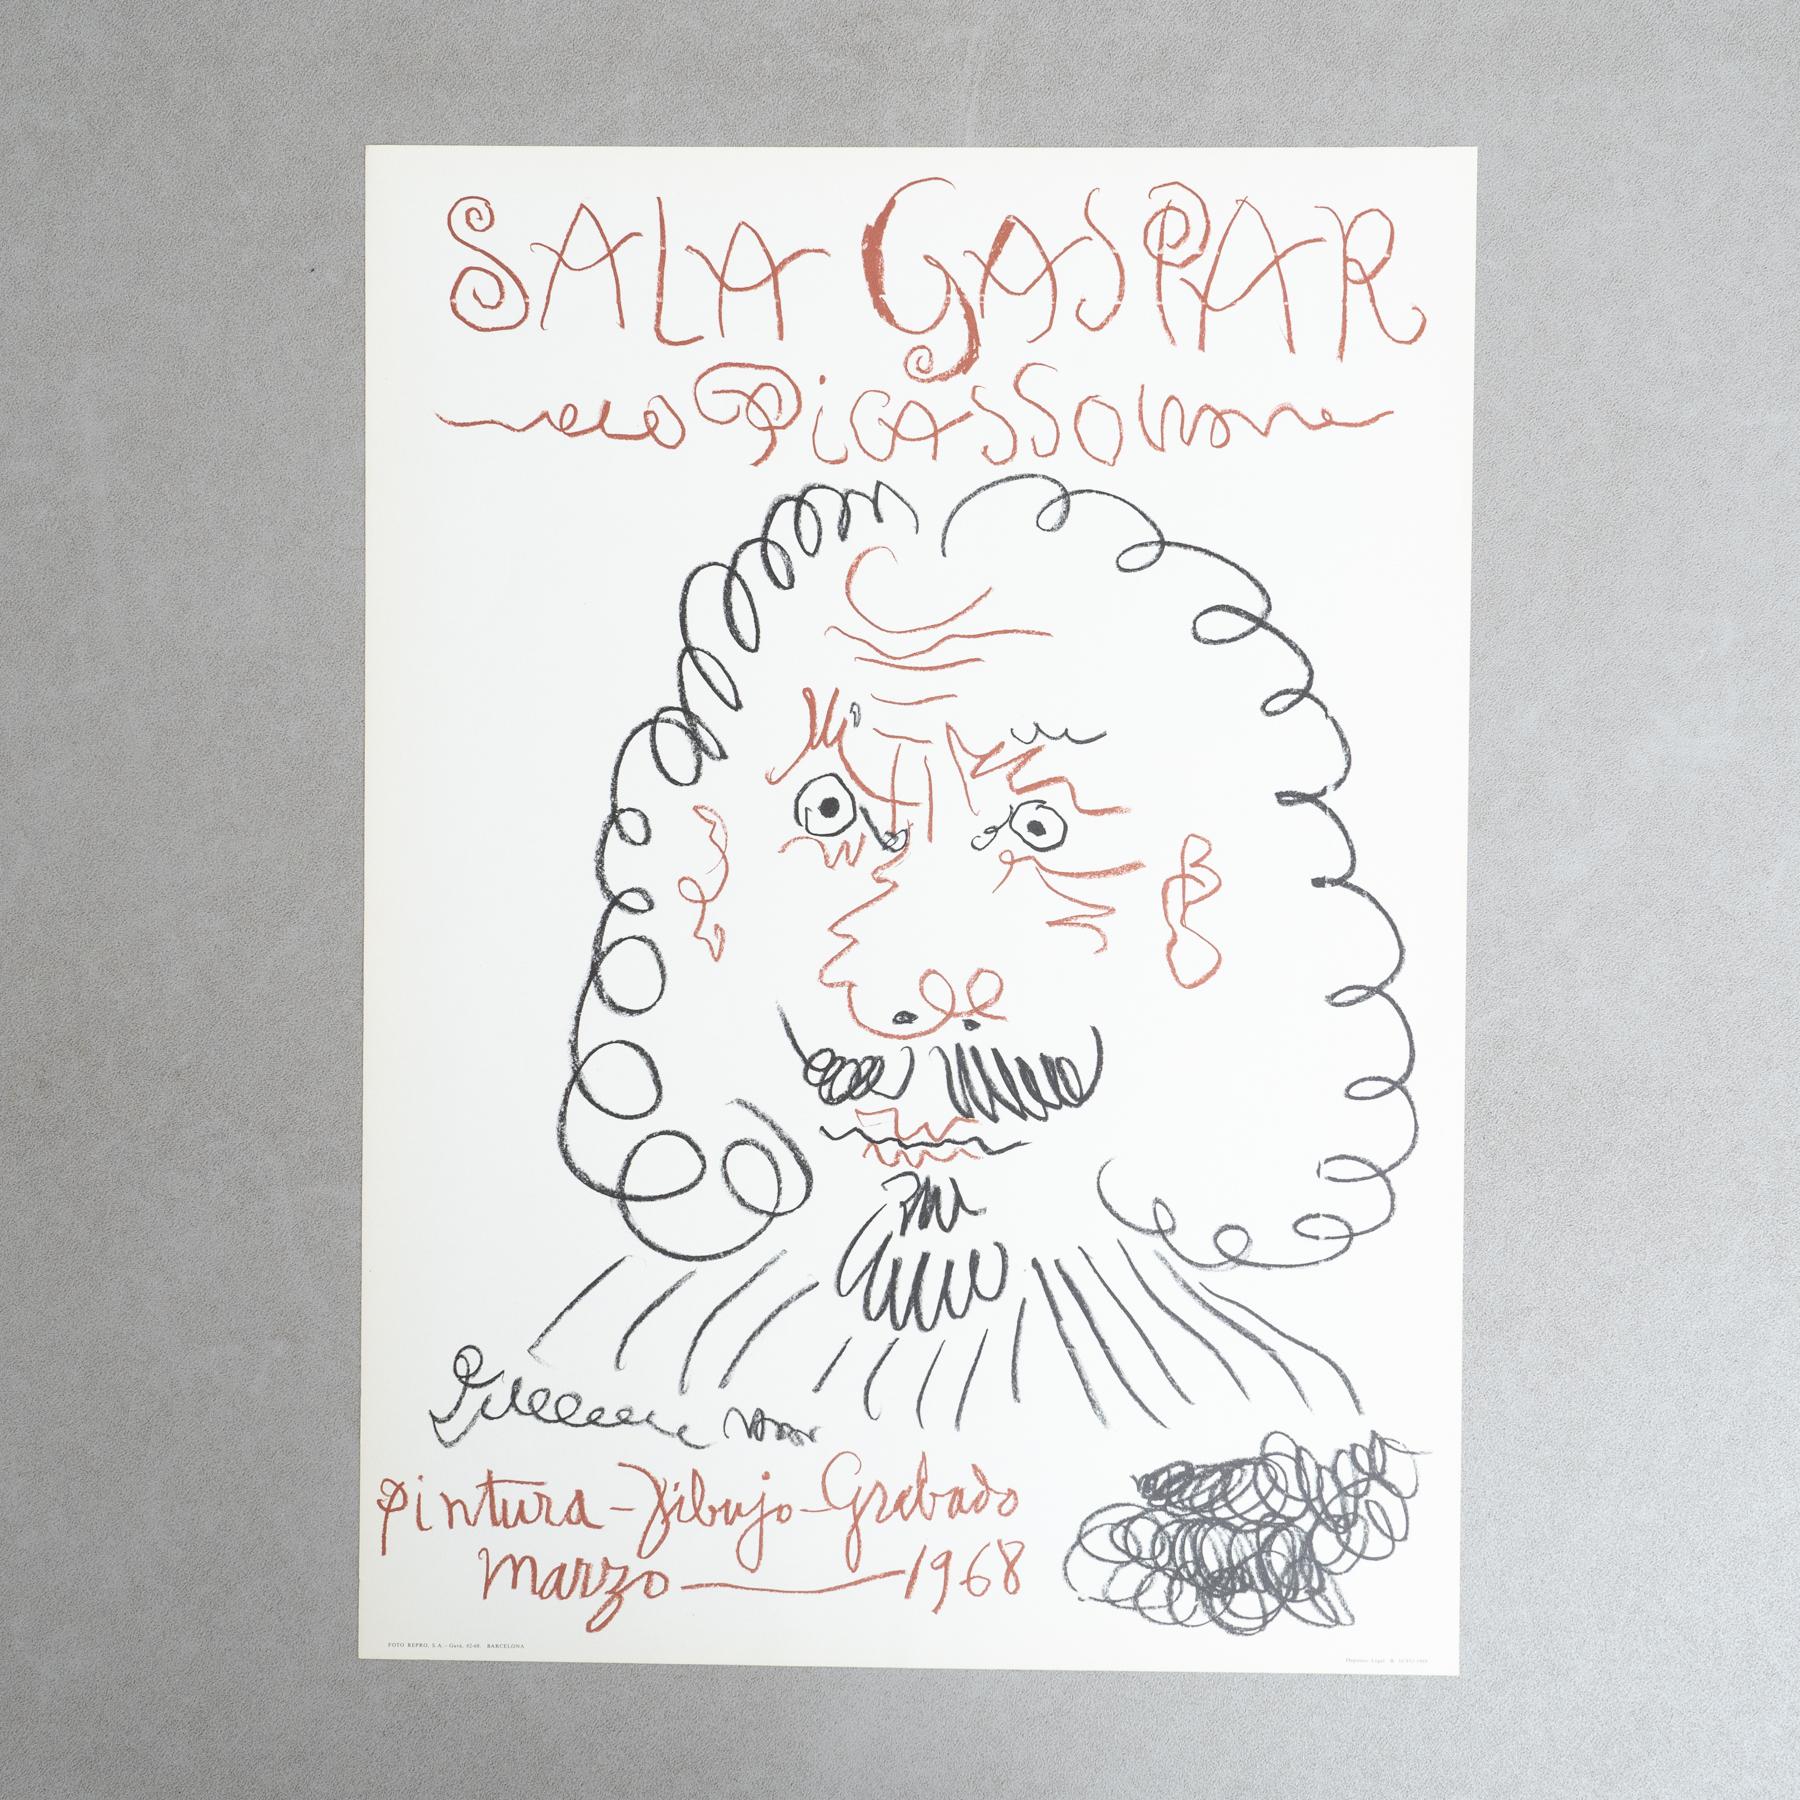 SALA GASPAR
Picasso
pintura - Dibujo - Grabado
marzo — 1968
FOTO REPRO, S.A. - Gavá, 62-68. BARCELONA
Depósito Legal B.